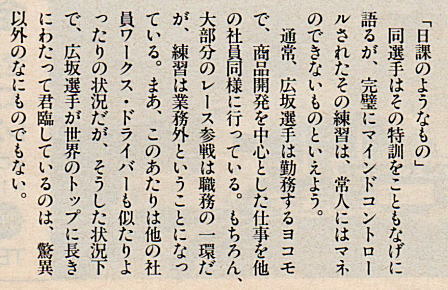 「日課のようなもの」
　同選手はその特訓をこともなげに
語るが、完璧にマインドコントロー
ルされたその練習は、常人にはマネ
のできないものといえよう。
　通常、広坂選手は勤務するヨコモ
で、商品開発を中心とした仕事を他
の社員同様に行っている。もちろん、
大部分のレース参戦は職務の一環だ
が、練習は業務外ということになっ
ている。まあ、このあたりは他の社
員ワークス・ドライバーも似たりよ
ったりの状況だが、そうした状況下
で、広坂選手が世界のトップに長き
にわたって君臨しているのは、驚異
以外のなにものでもない。